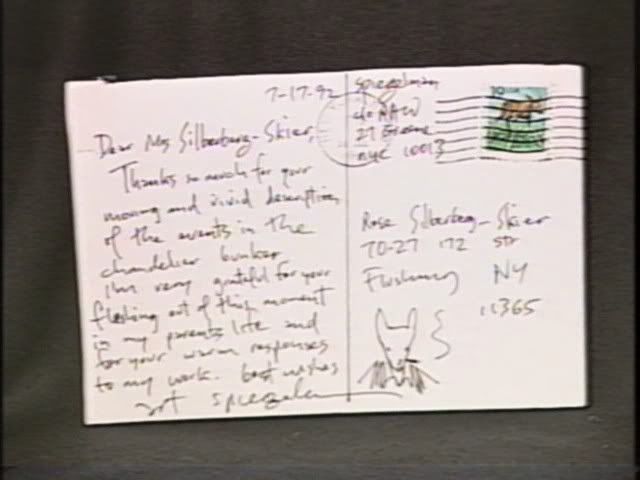 7-17-92
Dear Mrs Silberberg-Skier,
Thanks so much for your
moving and vivid description
of the events in the
chandelier bunker
I'm very grateful for your
fleshing out of this moment
in my parents life and
for your warm responses
to my work. best wishes
art spiegelman
spiegelman
c/o RAW
27 Greene
nyc 10013
Rose Silberberg-Skier
70-27 172 str
Flushing NY
11365